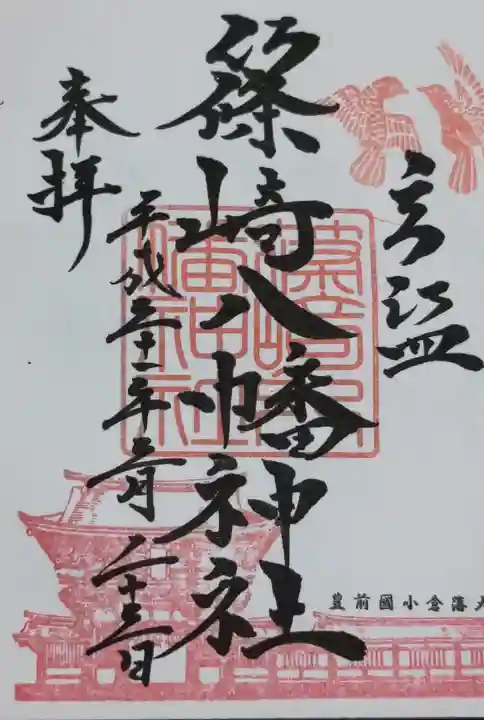 篠崎八幡神社
奉拝
平成三十一年二月二十三日
篠崎八幡神社
豊前國小倉藩